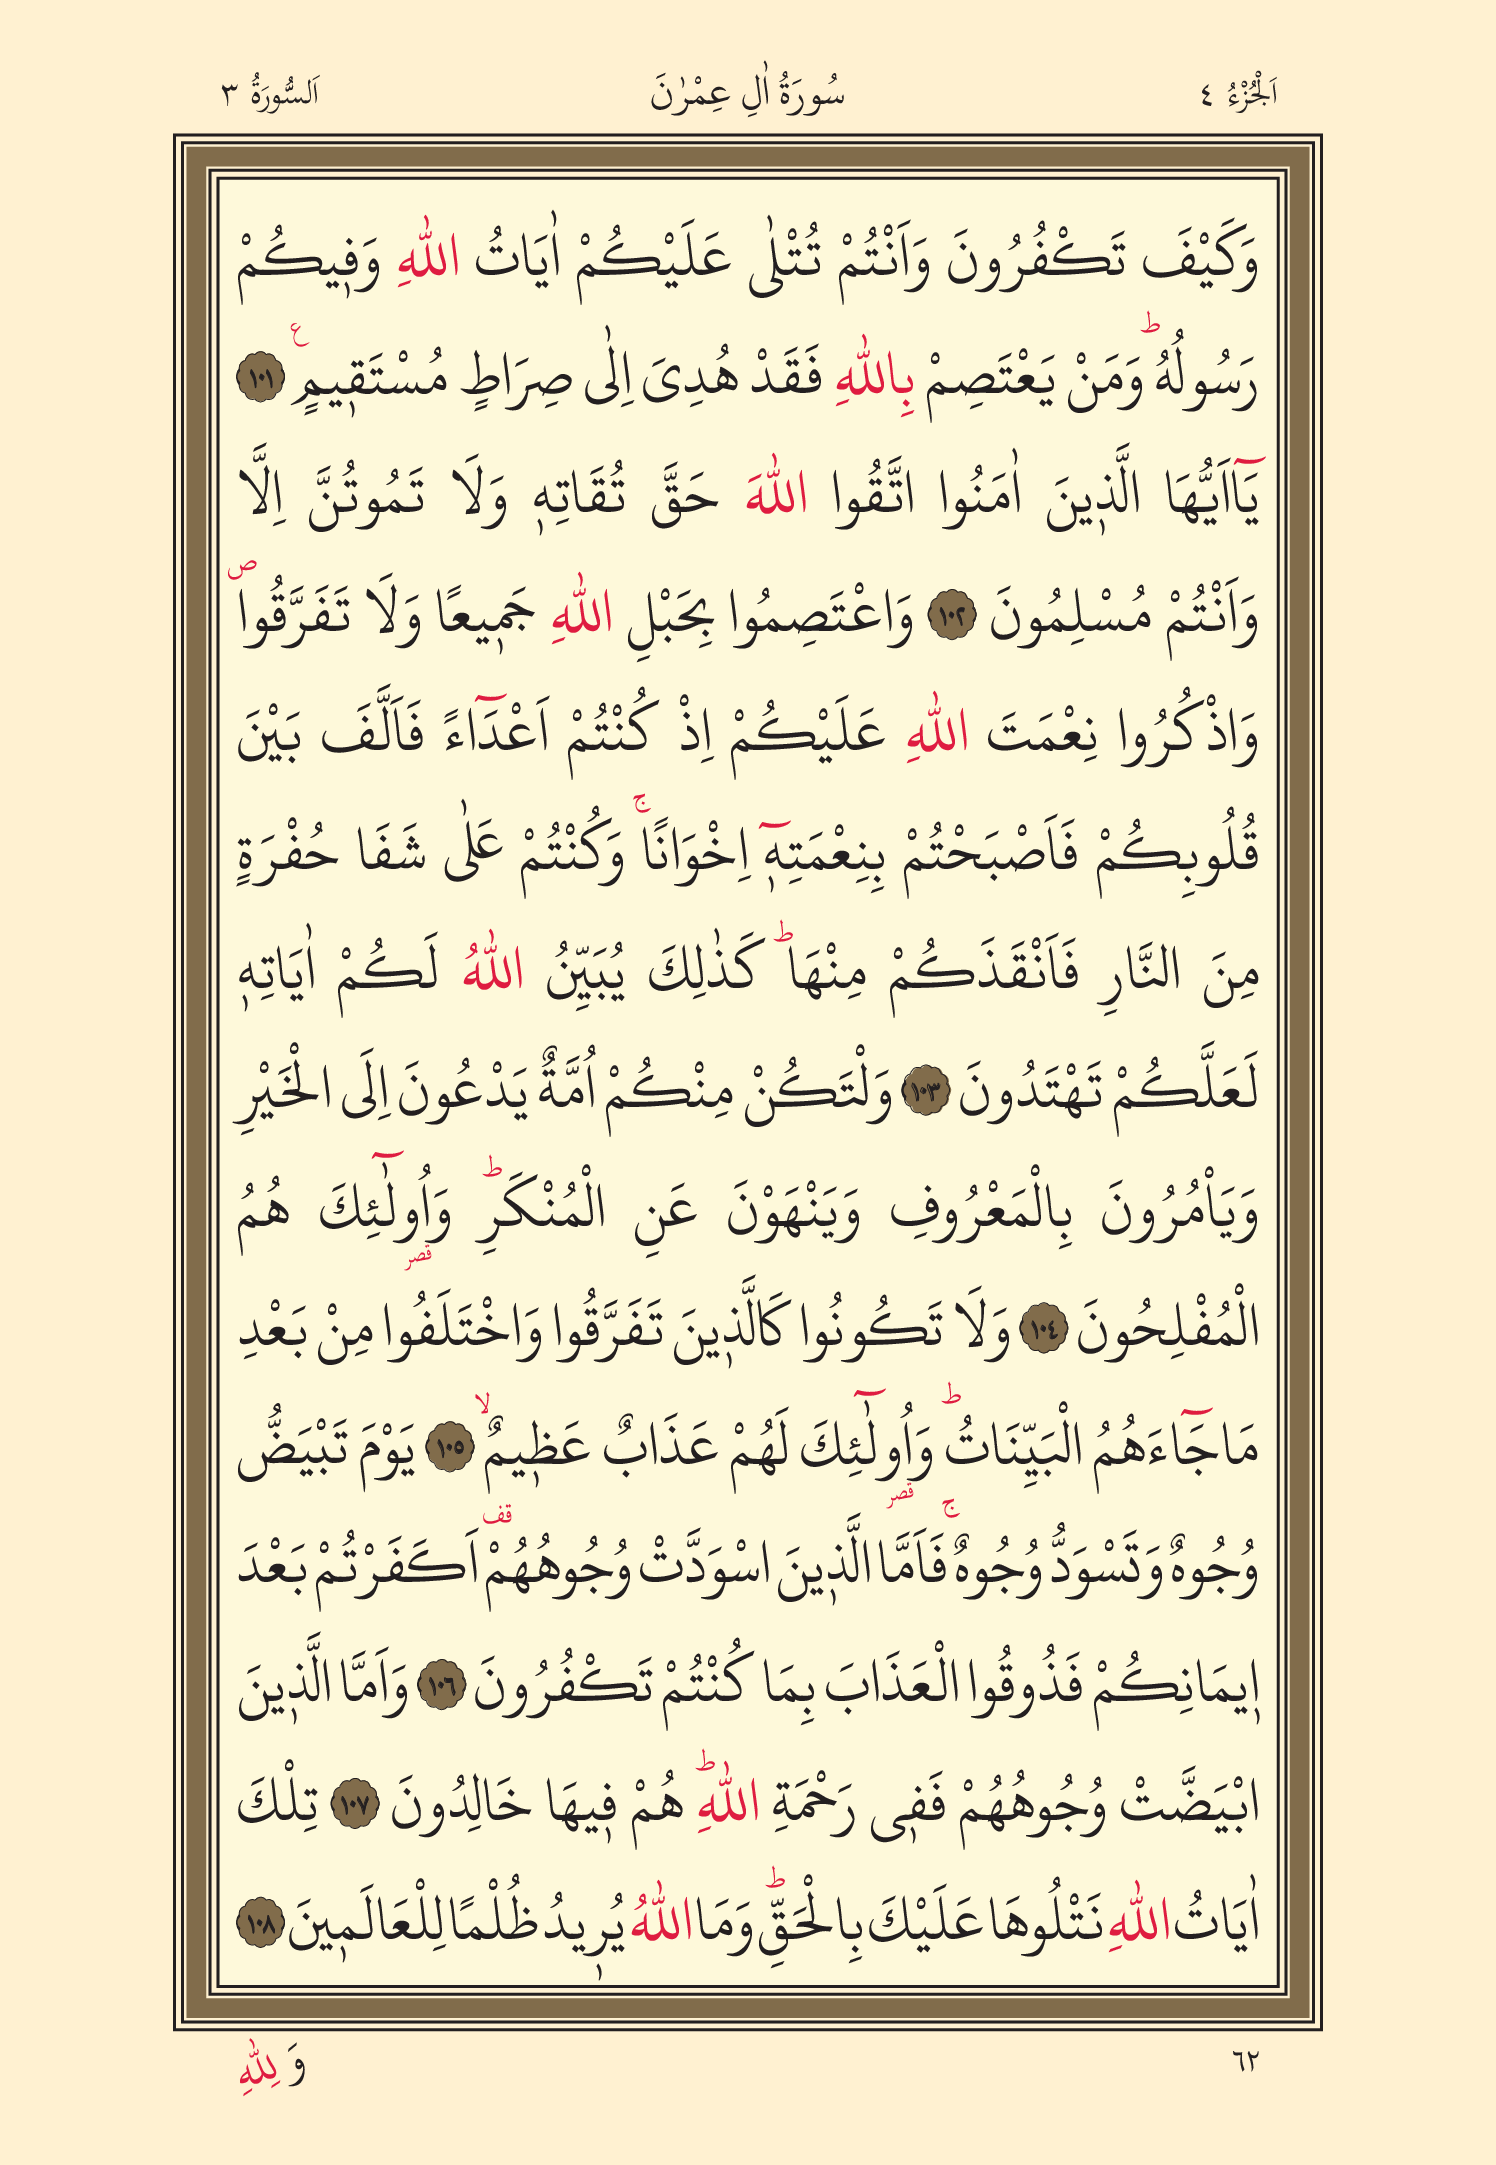 اَلْجُزْءُ ٤ سُورَةُ اٰلِ عِمْرٰنَ اَلسُّورَةُ ٣
وَكَيْفَ تَكْفُرُونَ وَاَنْتُمْ تُتْلٰى عَلَيْكُمْ اٰيَاتُ اللّٰهِ وَفٖيكُمْ
رَسُولُهُؕ وَمَنْ يَعْتَصِمْ بِاللّٰهِ فَقَدْ هُدِىَ اِلٰى صِرَاطٍ مُسْتَقٖيمٍ ع ١٠١
يَٓااَيُّهَا الَّذٖينَ اٰمَنُوا اتَّقُوا اللّٰهَ حَقَّ تُقَاتِهٖ وَلَا تَمُوتُنَّ اِلَّا
وَاَنْتُمْ مُسْلِمُونَ ١٠٢ وَاعْتَصِمُوا بِحَبْلِ اللّٰهِ جَمٖيعًا وَلَا تَفَرَّقُوا ص
وَاذْكُرُوا نِعْمَتَ اللّٰهِ عَلَيْكُمْ اِذْ كُنْتُمْ اَعْدَٓاءً فَاَلَّفَ بَيْنَ
قُلُوبِكُمْ فَاَصْبَحْتُمْ بِنِعْمَتِهٖٓ اِخْوَانًاۚ وَكُنْتُمْ عَلٰى شَفَا حُفْرَةٍ
مِنَ النَّارِ فَاَنْقَذَكُمْ مِنْهَاؕ كَذٰلِكَ يُبَيِّنُ اللّٰهُ لَكُمْ اٰيَاتِهٖ
لَعَلَّكُمْ تَهْتَدُونَ ١٠٣ وَلْتَكُنْ مِنْكُمْ اُمَّةٌ يَدْعُونَ اِلَى الْخَيْرِ
وَيَاْمُرُونَ بِالْمَعْرُوفِ وَيَنْهَوْنَ عَنِ الْمُنْكَرِؕ وَاُولٰٓئِكَ قصر هُمُ
الْمُفْلِحُونَ ١٠٤ وَلَا تَكُونُوا كَالَّذٖينَ تَفَرَّقُوا وَاخْتَلَفُوا مِنْ بَعْدِ
مَا جَٓاءَهُمُ الْبَيِّنَاتُؕ وَاُولٰٓئِكَ قصر لَهُمْ عَذَابٌ عَظٖيمٌۙ ١٠٥ يَوْمَ تَبْيَضُّ
وُجُوهٌ وَتَسْوَدُّ وُجُوهٌۚ فَاَمَّا الَّذٖينَ اسْوَدَّتْ وُجُوهُهُمْ قف اَكَفَرْتُمْ بَعْدَ
اٖيمَانِكُمْ فَذُوقُوا الْعَذَابَ بِمَا كُنْتُمْ تَكْفُرُونَ ١٠٦ وَاَمَّا الَّذٖينَ
ابْيَضَّتْ وُجُوهُهُمْ فَفٖى رَحْمَةِ اللّٰهِؕ هُمْ فٖيهَا خَالِدُونَ ١٠٧ تِلْكَ
اٰيَاتُ اللّٰهِ نَتْلُوهَا عَلَيْكَ بِالْحَقِّؕ وَمَا اللّٰهُ يُرٖيدُ ظُلْمًا لِلْعَالَمٖينَ ١٠٨
٦٢ وَلِلّٰهِ